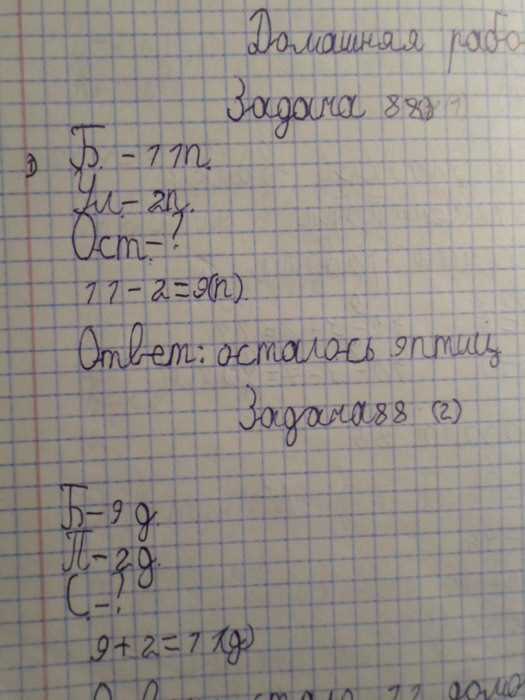 Домашняя рабо
Задача 88 (1)
1) Б. - 11п.
Ул. - 2п.
Ост. - ?
11 - 2 = 9(п).
Ответ: осталось 9 птиц
Задача 88 (2)
Б - 9 д.
П - 2 д.
С. - ?
9 + 2 = 11(д)
стало 11 дома